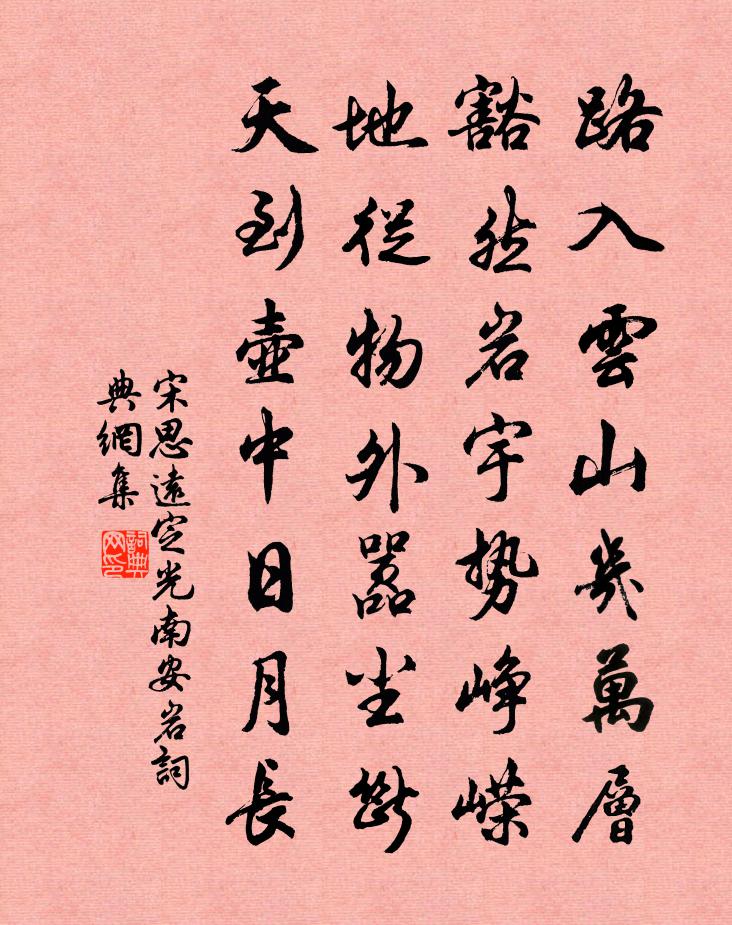 路入雲山幾萬層
豁然岩宇勢崢嶸
地從物外囂尘斷
天到壺中日月長
宋思遠定光南安岩詞
典網集
詞典网印